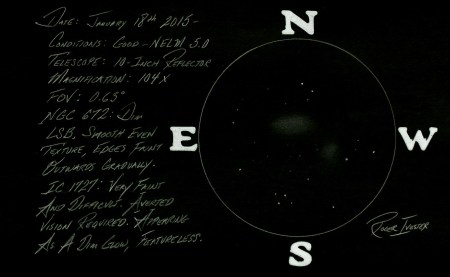 Date: January 18th 2015-
Conditions: Good - NELM 5.0
Telescope: 10-Inch Reflector
Magnification: 104x
FOV: 0.65°
NGC 672: Dim
LSB, Smooth Even
Texture, Edges Faint
Outwards Gradually.
IC 1727: Very Faint
And Difficult. Averted
Vision Required. Appearing
As A Dim Glow, Featureless.
N
E
W
S
Roger Ivester